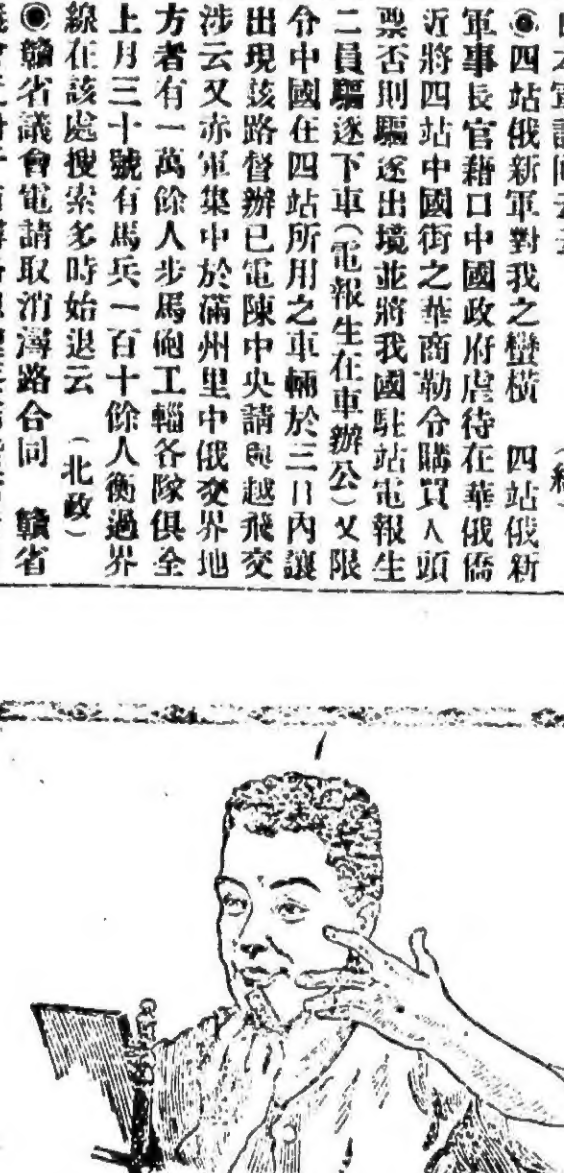 ◉四站俄新軍對我之蠻橫　四站俄新
軍事長官藉口中國政府虐待在華俄僑
近將四站中國街之華商勒令購買人頭
票否則驅逐出境並將我國駐站電報生
二員驅逐下車（電報生在車辦公）又限
令中國在四站所用之車輛於三日內讓
出現該路督辦已電陳中央請與越飛交
涉云又赤軍集中於滿州里中俄交界地
方者有一萬餘人步馬砲工輜各隊俱全
上月三十號有馬兵一百十餘人衝過界
線在該處搜索多時始退云　（北政）
◉贛省議會電請取消潯路合同　贛省